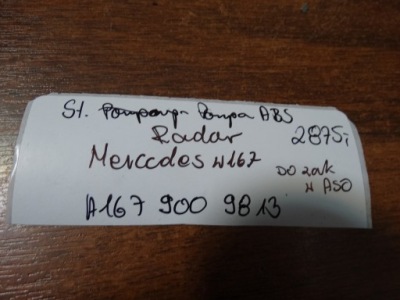 St. Pompa ABS
Radar 2875,-
Mercedes W167
DO zak
W ASO
A167 900 9813